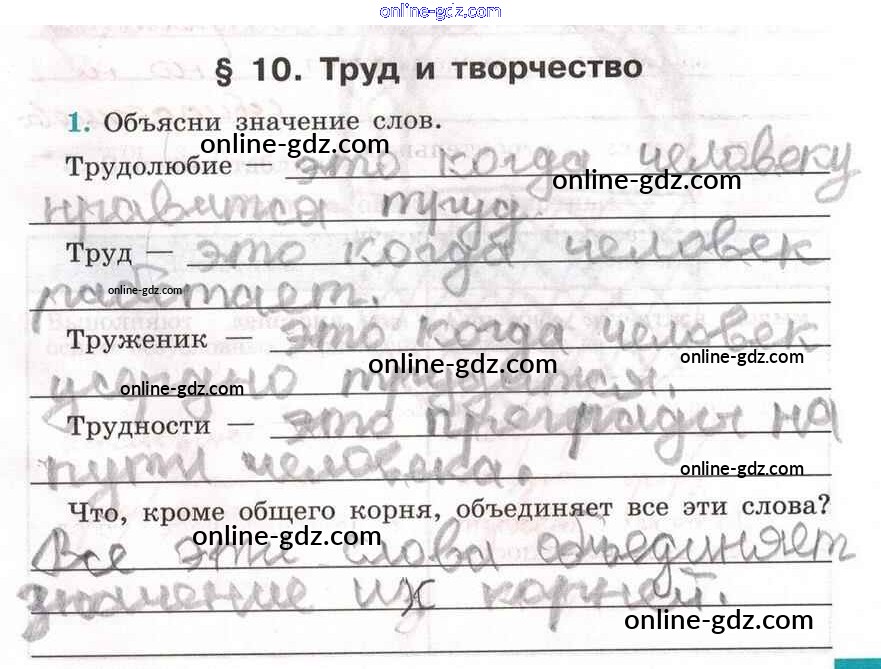 online-gdz.com
§ 10. Труд и творчество
1. Объясни значение слов.
online-gdz.com
Трудолюбие — это когда человеку
online-gdz.com
нравится труд
Труд — это когда человек
работает.
online-gdz.com
Труженик — это когда человек
online-gdz.com
online-gdz.com
усердно трудится.
online-gdz.com
Трудности — это преграды на
пути человека.
online-gdz.com
Что, кроме общего корня, объединяет все эти слова?
online-gdz.com
Все эти слова объединяет
значение их корней.
online-gdz.com